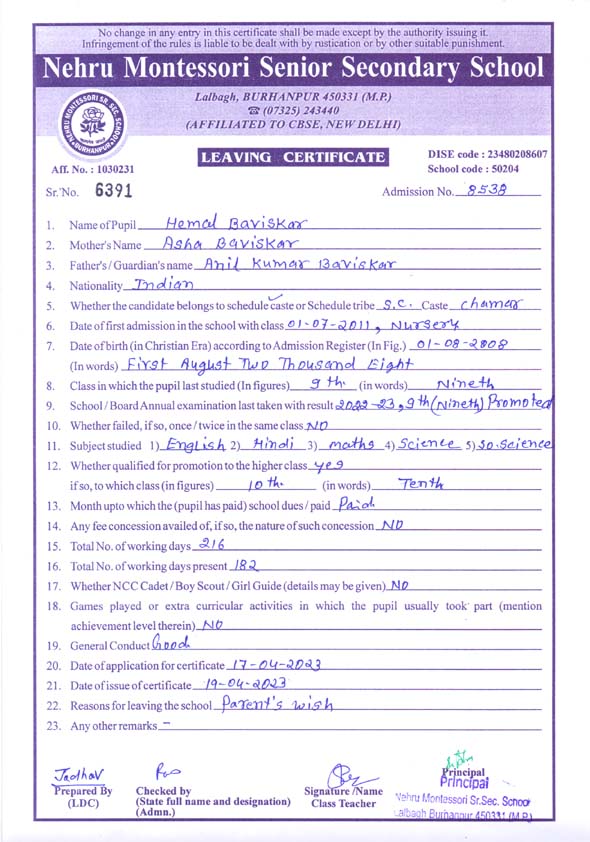 No change in any entry in this certificate shall be made except by the authority issuing it.
Infringement of the rules is liable to be dealt with by rustication or by other suitable punishment.
Nehru Montessori Senior Secondary School
Lalbagh, BURHANPUR 450331 (M.P.)
☎ (07325) 243440
(AFFILIATED TO CBSE, NEW DELHI)
NEHRU MONTESSORI SR. SEC. SCHOOL
BURHANPUR
LEAVING CERTIFICATE
DISE code : 23480208607
Aff. No. : 1030231 School code : 50204
Sr. No. 6391 Admission No. 8538
1. Name of Pupil Hemal Baviskar
2. Mother's Name Asha Baviskar
3. Father's / Guardian's name Anil Kumar Baviskar
4. Nationality Indian
5. Whether the candidate belongs to schedule caste or Schedule tribe S.C. Caste Chamar
6. Date of first admission in the school with class 01-07-2011, Nursery
7. Date of birth (in Christian Era) according to Admission Register (In Fig.) 01-08-2008
(In words) First August Two Thousand Eight
8. Class in which the pupil last studied (In figures) 9th. (in words) Nineth
9. School / Board Annual examination last taken with result 2022-23, 9th (Nineth) Promoted
10. Whether failed, if so, once / twice in the same class NO
11. Subject studied 1) English 2) Hindi 3) maths 4) Science 5) So.Science
12. Whether qualified for promotion to the higher class yes
if so, to which class (in figures) 10th. (in words) Tenth
13. Month upto which the (pupil has paid) school dues / paid Paid
14. Any fee concession availed of, if so, the nature of such concession NO
15. Total No. of working days 216
16. Total No. of working days present 182
17. Whether NCC Cadet / Boy Scout / Girl Guide (details may be given) NO
18. Games played or extra curricular activities in which the pupil usually took part (mention
achievement level therein) NO
19. General Conduct Good
20. Date of application for certificate 17-04-2023
21. Date of issue of certificate 19-04-2023
22. Reasons for leaving the school Parent's wish
23. Any other remarks -
Jadhav
Prepared By
(LDC)
Checked by
(State full name and designation)
(Admn.)
Signature /Name
Class Teacher
Principal
Principal
Nehru Montessori Sr.Sec. School
Lalbagh Burhanpur 450331 (M.P.)